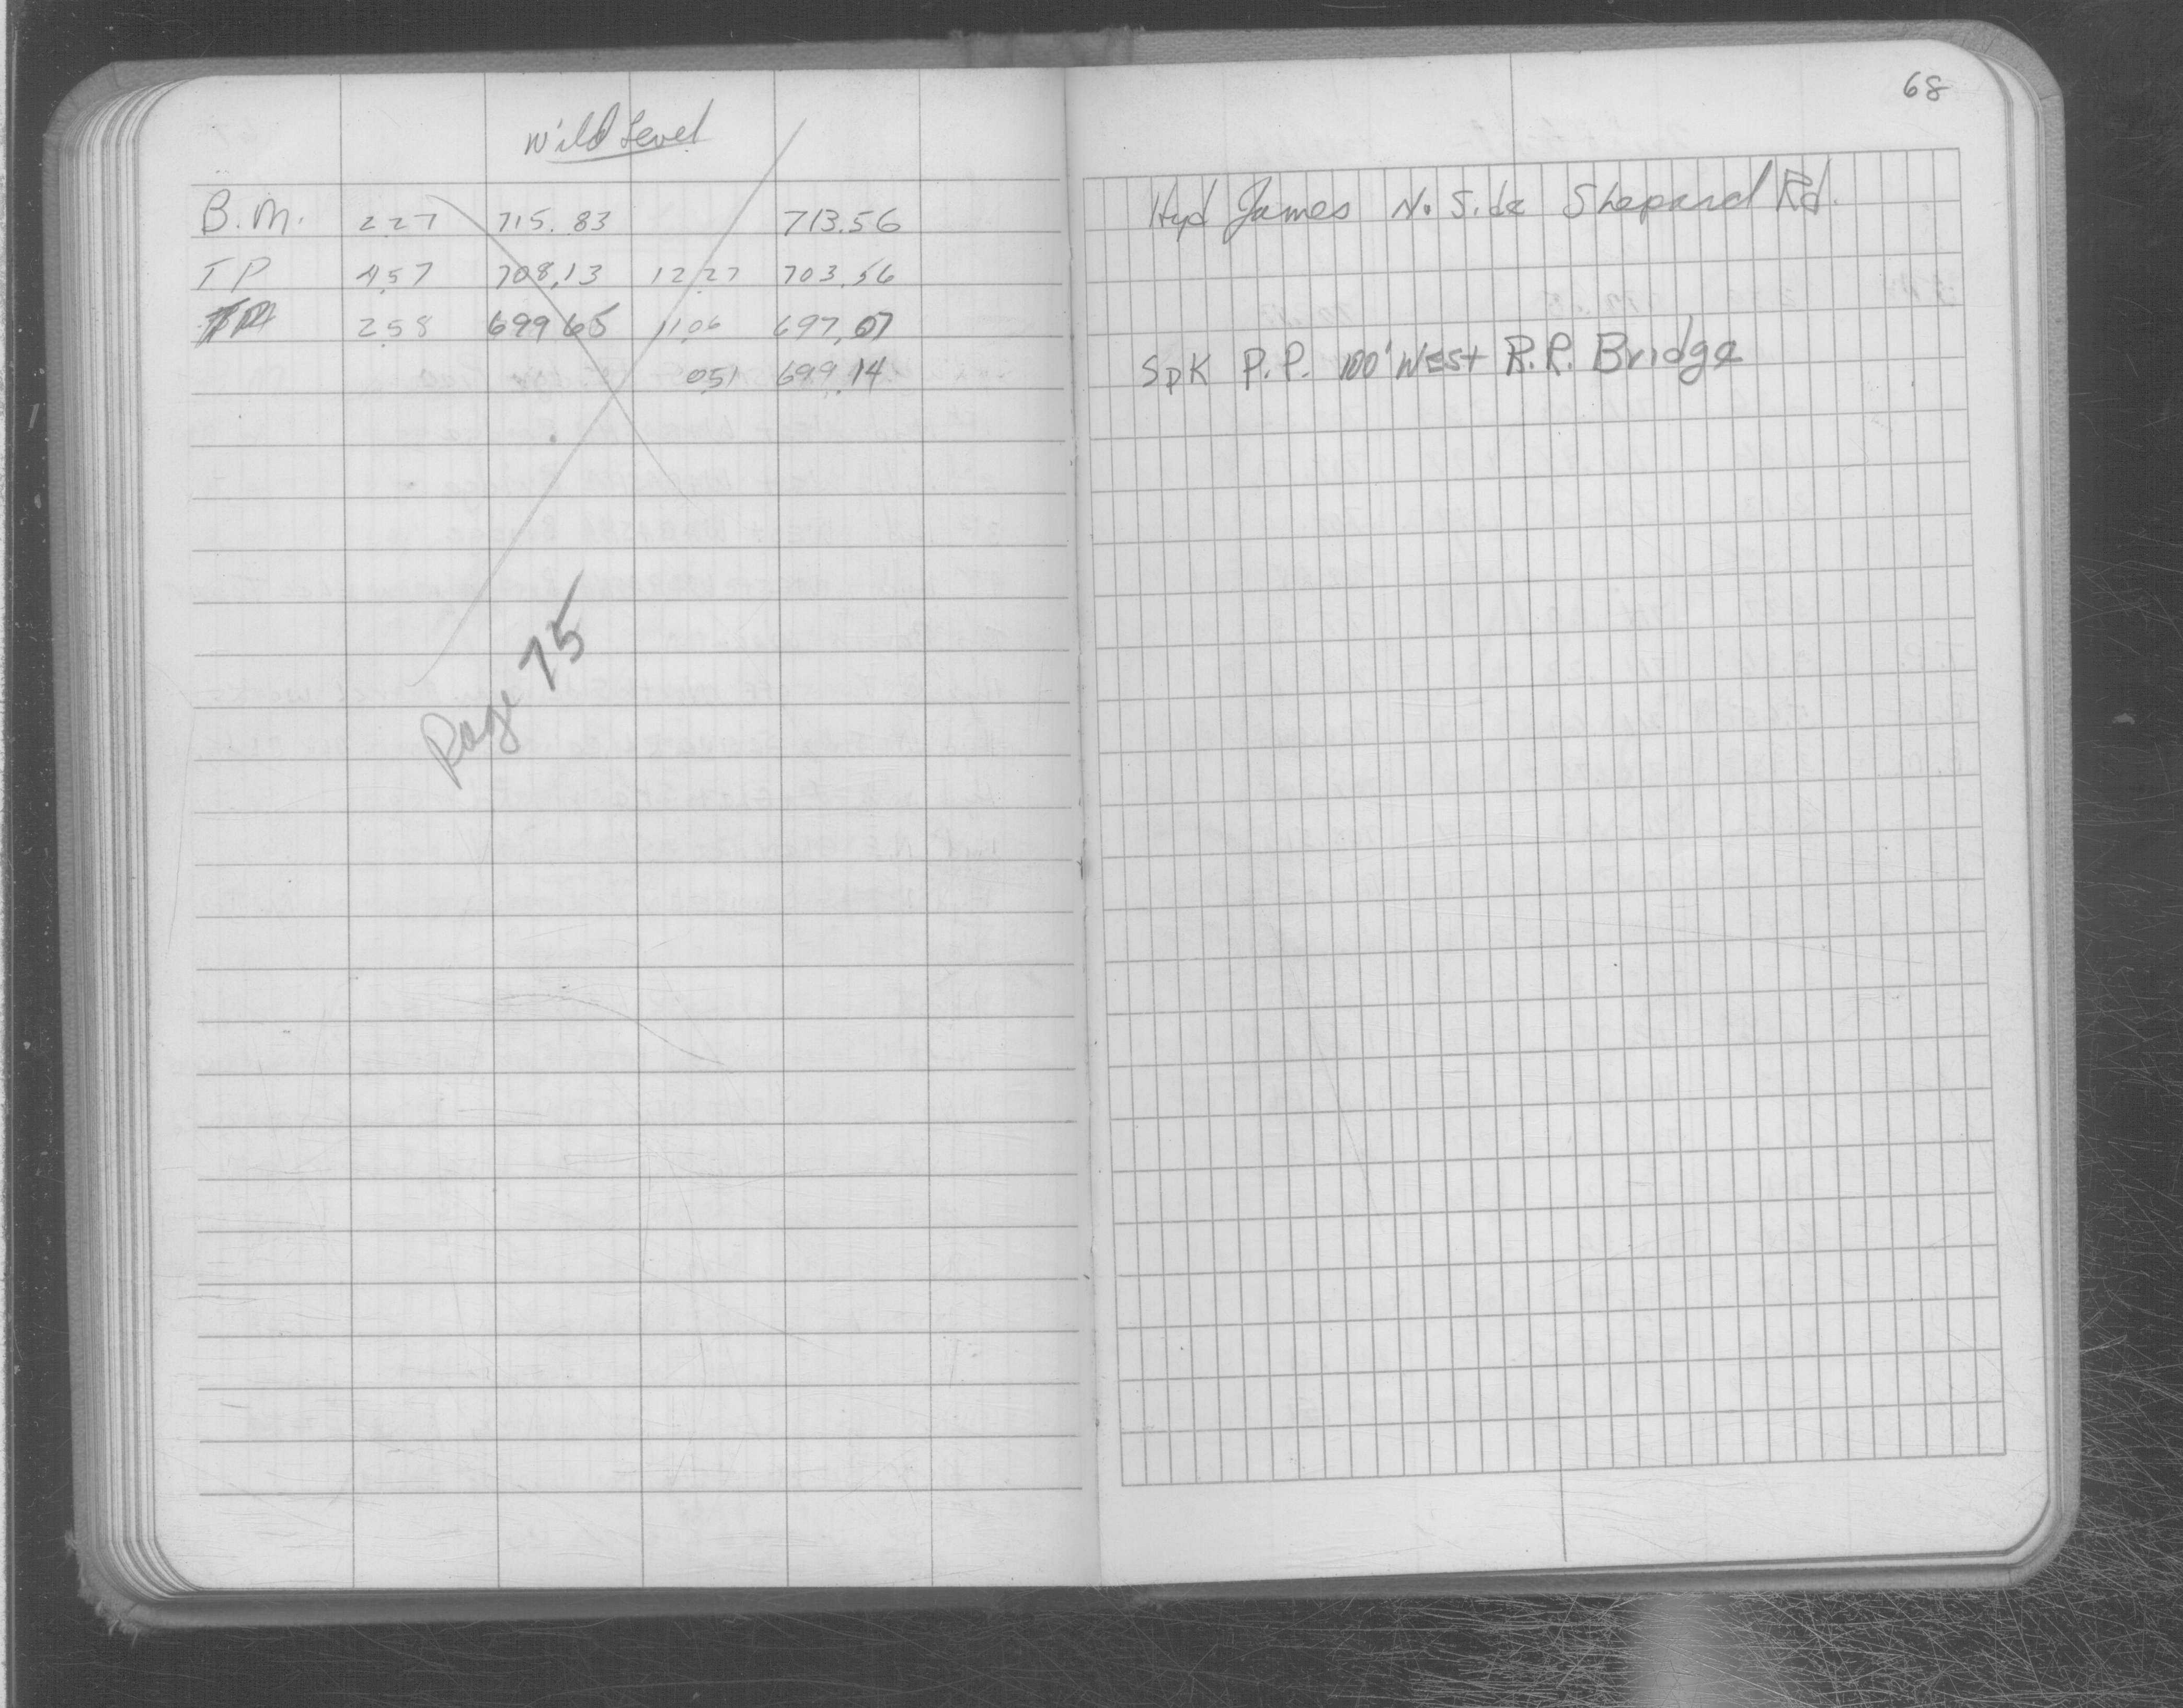 68
Wild Level
B.M. 2.27 715.83 713.56 Hyd James N. Side Shepard Rd.
T P 4.57 708.13 12.27 703.56
TP 2.58 699.65 11.06 697.07
0.51 699.14 SpK P.P. 100' West R.R. Bridge
Page 75